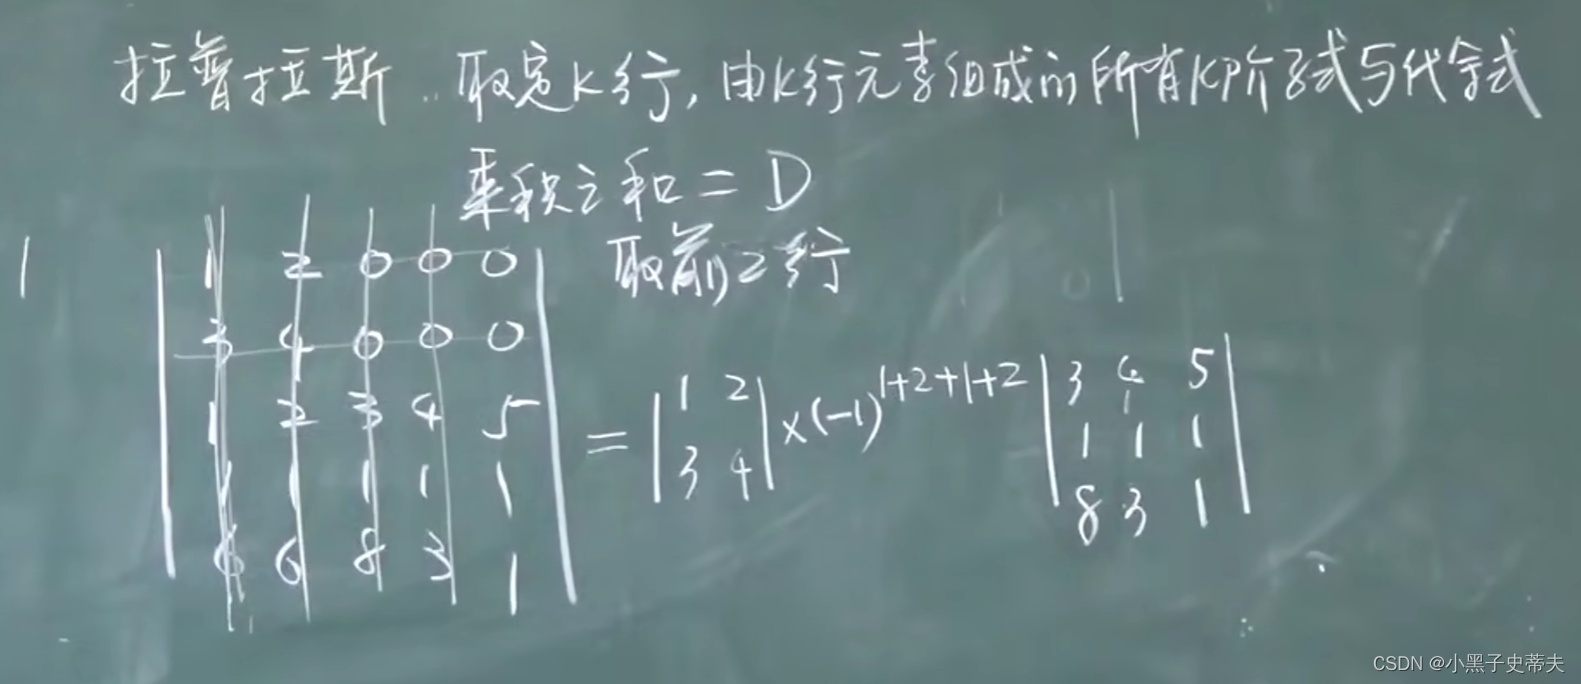 拉普拉斯 .. 取定K行, 由K行元素组成的所有K阶子式与代余式
乘积之和 = D
取前2行
1 2 0 0 0
3 4 0 0 0
1 2 3 4 5
1 1 1 1 1
6 6 8 3 1
= | 1 2 | ×(-1)^{1+2+1+2} | 3 4 5 |
3 4
1 1 1
8 3 1
CSDN @小黑子史蒂夫